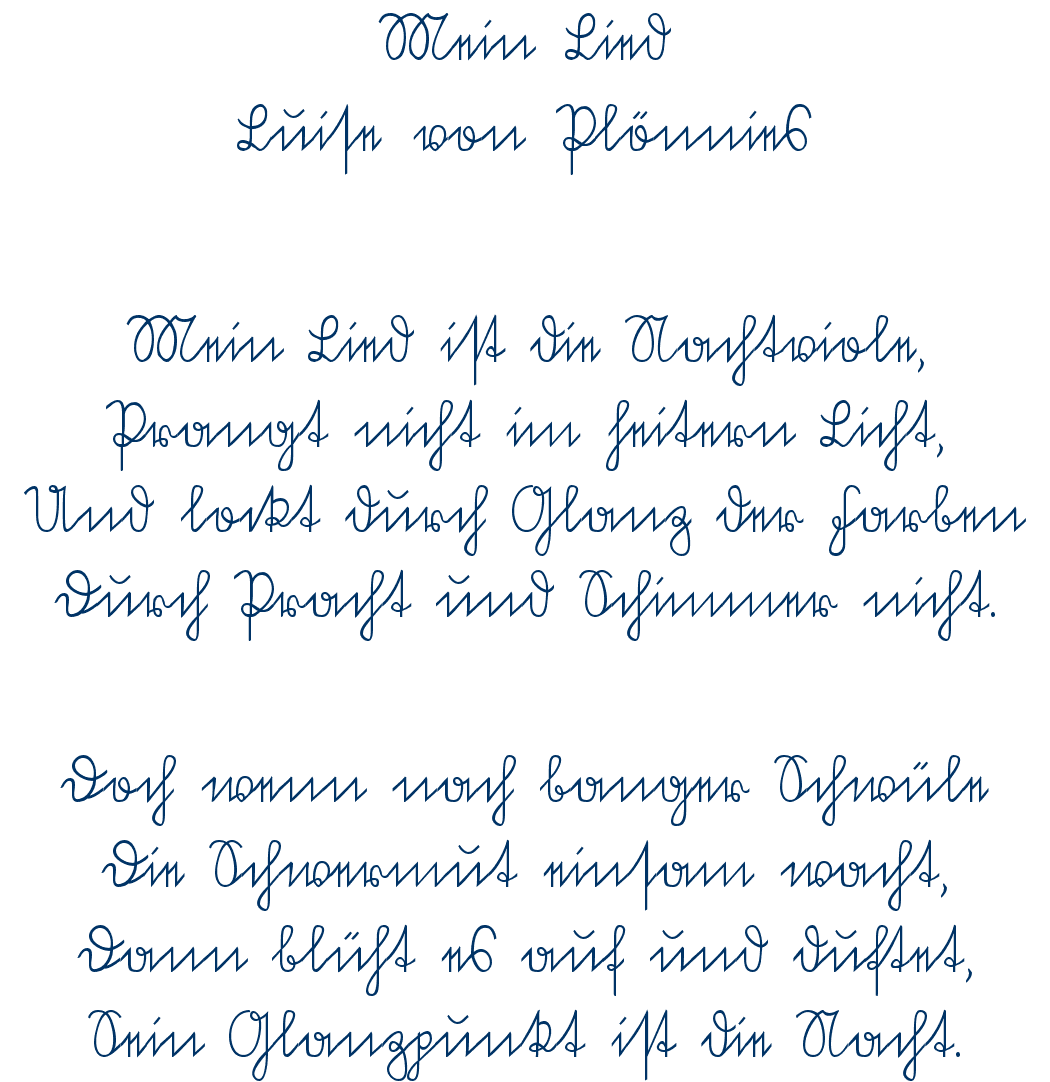 Mein Lied
Luise von Plönnies
Mein Lied ist die Nachtviole,
Prangt nicht im heitern Licht,
Und lockt durch Glanz der Farben
Durch Pracht und Schimmer nicht.
Doch wenn nach banger Schwüle
Die Schwermut einsam wacht,
Dann blüht es auf und duftet,
Sein Glanzpunkt ist die Nacht.